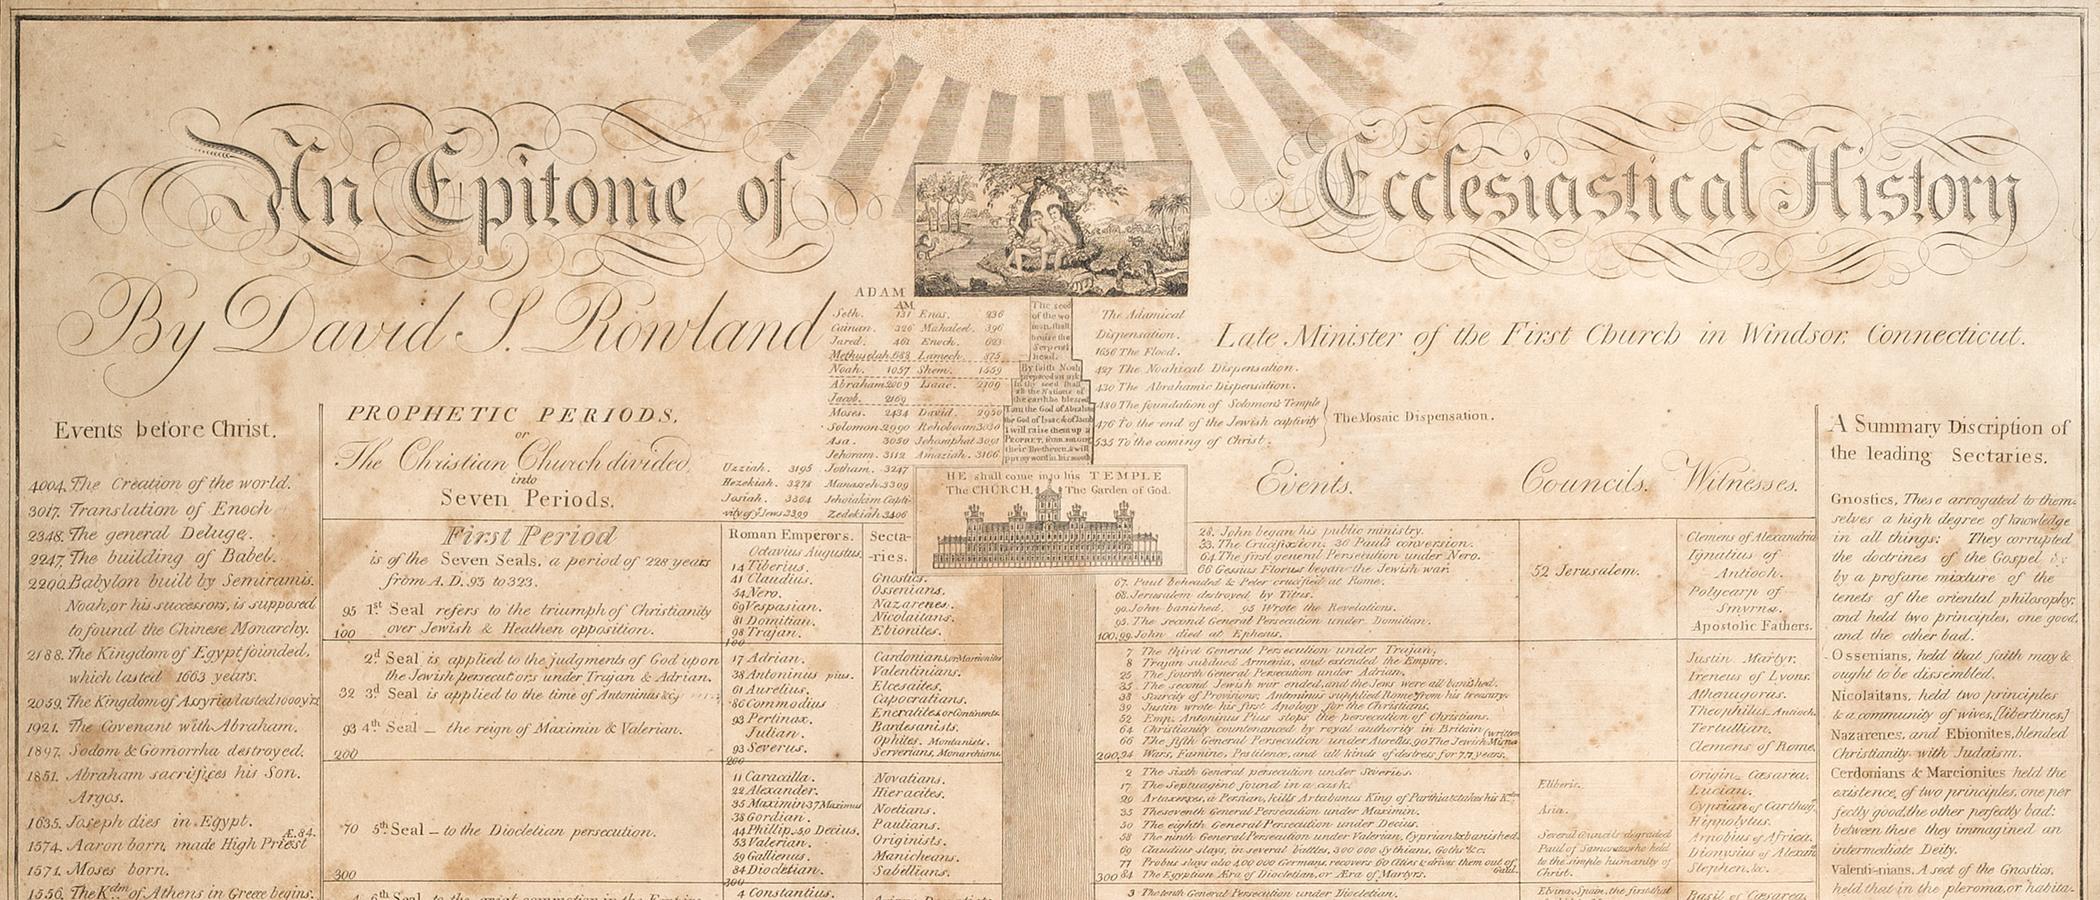 An Epitome of Ecclesiastical History
By David S. Rowland
Late Minister of the First Church in Windsor, Connecticut.
Events before Christ.
4004. The Creation of the world.
3017. Translation of Enoch
2348. The general Deluge.
2247. The building of Babel.
Babylon built by Semiramis.
Noah, or his successors, is supposed
to found the Chinese Monarchy.
2188. The Kingdom of Egypt founded,
which lasted 1663 years.
2059. The Kingdom of Assyria lasted 1000 yrs
1921. The Covenant with Abraham.
1897. Sodom & Gomorrha destroyed.
1851. Abraham sacrifices his Son.
Argos.
1635. Joseph dies in Egypt.
Æ. 84.
1574. Aaron born, made High Priest
1571. Moses born.
1556. The Kdm of Athens in Greece begins.
PROPHETIC PERIODS,
or
The Christian Church divided
into
Seven Periods.
First Period
is of the Seven Seals, a period of 228 years
from A.D. 95 to 323.
95 1st Seal refers to the triumph of Christianity
over Jewish & Heathen opposition.
100
2d Seal is applied to the judgments of God upon
the Jewish persecutors under Trajan & Adrian.
32 3d Seal is applied to the time of Antoninus &c
93 4th Seal _ the reign of Maximin & Valerian.
200
70 5th Seal _ to the Diocletian persecution.
300
6th Seal
ADAM
AM
Seth. 131 Enos. 236
Cainan. 326 Mahaleel. 396
Jared. 461 Enoch. 623
Methuselah 688 Lamech. 875
Noah. 1057 Shem. 1559
Abraham 2009 Isaac. 2109
Jacob. 2169
Moses. 2434 David. 2950
Solomon 2990 Rehoboam 3030
Asa. 3050 Jehosiphat 3091
Jehoram. 3112 Amaziah. 3166
Uzziah. 3195 Jotham. 3247
Hezekiah. 3278 Manasseh 3309
Josiah. 3364 Jehoiakim Capti-
vity of ye Jews 3399 Zedekiah 3406
Roman Emperors.
Octavius Augustus.
14 Tiberius.
41 Claudius.
54 Nero.
69 Vespasian.
81 Domitian.
98 Trajan.
100
17 Adrian.
38 Antoninus pius.
61 Aurelius.
86 Commodius
93 Pertinax.
Julian.
93 Severus.
200
11 Caracalla.
22 Alexander.
35 Maximin 37 Maximus
38 Gordian.
44 Phillip. 50 Decius.
53 Valerian.
59 Gallienus.
84 Diocletian.
300
4 Constantius.
Secta-
-ries.
Gnostics.
Ossenians.
Nazarenes.
Nicolaitans.
Ebionites.
Cardonians, or Marcionites
Valentinians.
Elcesaites.
Capocratians.
Encratites or Continents.
Bardesanists.
Ophites. Montanists.
Serverians, Monarchians.
Novatians.
Hieracites.
Noetians.
Paulians.
Originists.
Manicheans.
Sabellians.
The seed
of the wo
man, shall
bruise the
Serpents
head.
By faith Noah
prepared an ark
In thy seed shall
all the Nations of
the earth be blessed
I am the God of Abraham
the God of Isaac & of Jacob
I will raise them up a
PROPHET, from among
their Brethren, & will
put my words in his mouth
HE shall come into his TEMPLE
The CHURCH, The Garden of God.
The Adamical
Dispensation.
1656 The Flood.
427 The Noahical Dispensation.
430 The Abrahamic Dispensation.
480 The foundation of Solomon's Temple
476 To the end of the Jewish captivity
535 To the coming of Christ.
The Mosaic Dispensation.
Events.
28. John began his public ministry.
33. The Crucifixion. 36 Paul's conversion.
64 The first general Persecution under Nero.
66 Gessius Florus began the Jewish war.
67. Paul beheaded & Peter crucified at Rome.
68. Jerusalem destroyed by Titus.
90. John banished. 95 Wrote the Revelations.
95. The second General Persecution under Domitian.
100,99. John died at Ephesus.
7 The third General Persecution under Trajan,
8 Trajan subdued Armenia, and extended the Empire.
25 The fourth General Persecution under Adrian.
35 The second Jewish war ended, and the Jews were all banished.
38 Scarcity of Provisions; Antoninus supplied Rome from his treasury.
39 Justin wrote his first Apology for the Christians.
52 Emp. Antoninus Pius stops the persecution of Christians.
64 Christianity countenanced by royal authority in Britain (written
66 The fifth General Persecution under Aurelius. 90 The Jewish Misna
200,94 Wars, Famine, Pestilence, and all kinds of distress, for 77 years.
2 The sixth General persecution under Severus.
17 The Septuagint found in a cask.
29 Artaxerxes, a Persian, kills Artabanus King of Parthia & takes his Kdm.
35 The seventh General Persecution under Maximin.
50 The eighth General Persecution under Decius.
58 The ninth General Persecution under Valerian, Cyprian & c banished.
69 Claudius slays, in several battles, 300 000 Sythians, Goths &c.
77 Probus slays also 400 000 Germans, recovers 60 Cities & drives them out of
Gaul.
300 84 The Egyptian Æra of Diocletian, or Æra of Martyrs.
3 The tenth General Persecution under Diocletian.
Councils.
52 Jerusalem.
Eliberic.
Asia.
Several Councils degraded
Paul of Samosata who held
to the simple humanity of
Christ.
Elvira, Spain, the first that
Witnesses.
Clemens of Alexandria
Ignatius of
Antioch.
Polycarp of
Smyrna.
Apostolic Fathers.
Justin Martyr.
Ireneus of Lyons.
Athenagoras.
Theophilus_Antioch.
Tertullian.
Clemens of Rome.
Origin_Cæsarea.
Lucian.
Cyprian of Carthag.
Hippolytus.
Arnobius of Africa.
Dionysius of Alexan
Stephen, &c.
Basil of Cæsarea.
A Summary Discription of
the leading Sectaries.
Gnostics, These arrogated to them-
selves a high degree of knowledge
in all things: They corrupted
the doctrines of the Gospel
by a profane mixture of the
tenets of the oriental philosophy,
and held two principles, one good,
and the other bad.
Ossenians, held that faith may &
ought to be dissembled.
Nicolaitans, held two principles
& a community of wives, [libertines.]
Nazarenes, and Ebionites, blended
Christianity with Judaism.
Cerdonians & Marcionites held the
existence, of two principles, one per
fectly good, the other perfectly bad:
between these they immagined an
intermediate Deity.
Valenti-nians, A sect of the Gnostics,
held that in the pleroma, or habita-